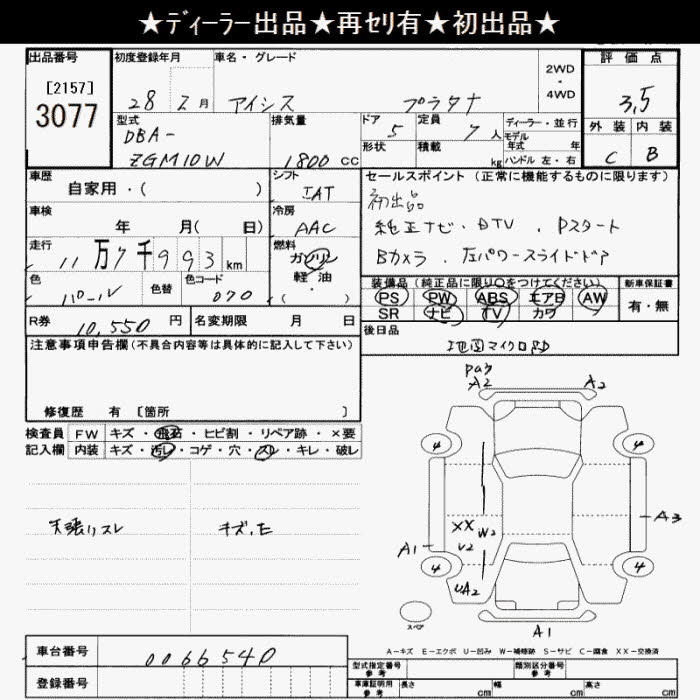 ★ディーラー出品★再セリ有★初出品★
出品番号
[2157]
3077
初度登録年月
28 年 2 月
車名・グレード
アイシス プラタナ
2WD
・
4WD
評価点
3.5
外装 内装
C B
型式
DBA-
ZGM10W
排気量
1800 CC
ドア
5
定員
7 人
形状
積載
kg
ディーラー・並行
モデル
年式 年
ハンドル 左・右
車歴
自家用・( )
シフト
IAT
車検
年 月( 日)
冷房
AAC
走行
11 万 7 千 9 9 3 km
燃料
ガソリン
軽・油
・( )
色
パール
色替
色コード
070
R券
10,550 円
名変期限 月 日
セールスポイント (正常に機能するものに限ります)
初出品
純正ナビ・DTV . Pスタート
Bカメラ . 左パワースライドドア
装備品 (純正品に限り○をつけてください)
PS PW ABS エアB AW
SR ナビ TV カワ
新車保証書
有・無
後日品
地図マイクロSD
注意事項申告欄 (不具合内容等は具体的に記入して下さい)
修復歴 有 [箇所 ]
検査員 FW キズ・飛石・ヒビ割・リペア跡・×要
記入欄 内装 キズ・汚レ・コゲ・穴・スレ・キレ・破レ
天張りスレ
キズ、E
A2
A2
4
4
XX
W2
A3
A1
4
4
UA2
スペア
A1
A-キズ E-エクボ U-凹み W-補修跡 S-サビ C-腐食 XX-交換済
車台番号
0066540
登録番号
型式指定番号
参考
類別区分番号
参考
車庫証明用
参考
長さ cm
幅 cm
高さ cm